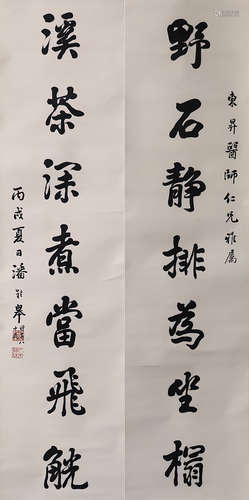 東昇醫師仁兄雅屬
野石靜排為坐榻
溪茶深煮當飛觥
丙戌夏日潘齡皋